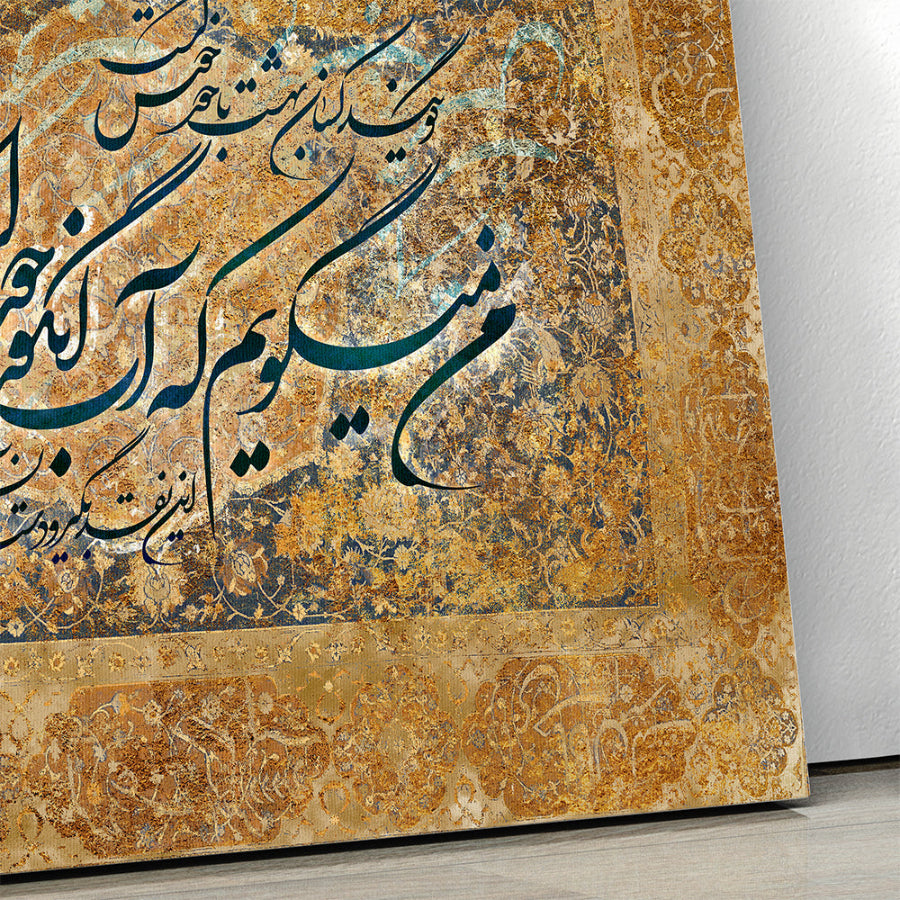 گویند کسان بهشت با حور خوش است
من میگویم که آب انگور خو
این نقد بگیر و دست